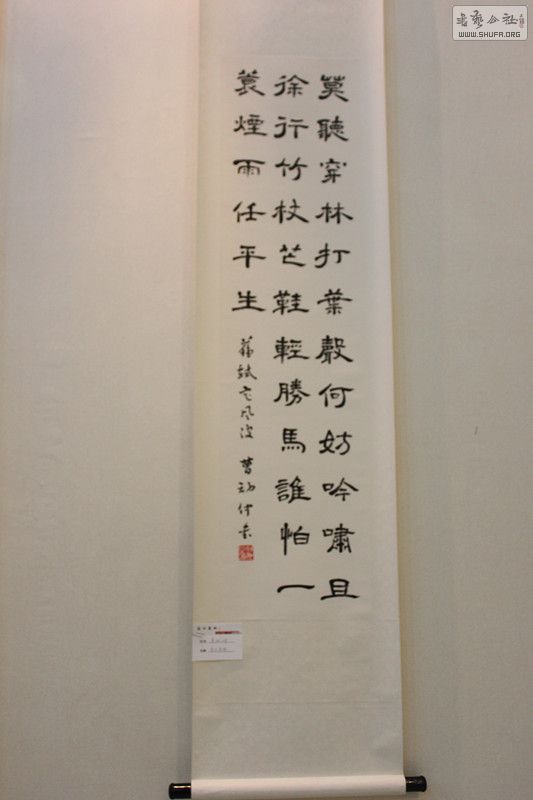 莫聽穿林打葉聲何妨吟嘯且
徐行竹杖芒鞋輕勝馬誰怕一
蓑煙雨任平生
蘇軾定风波 曹
書藝公社
WWW.SHUFA.ORG